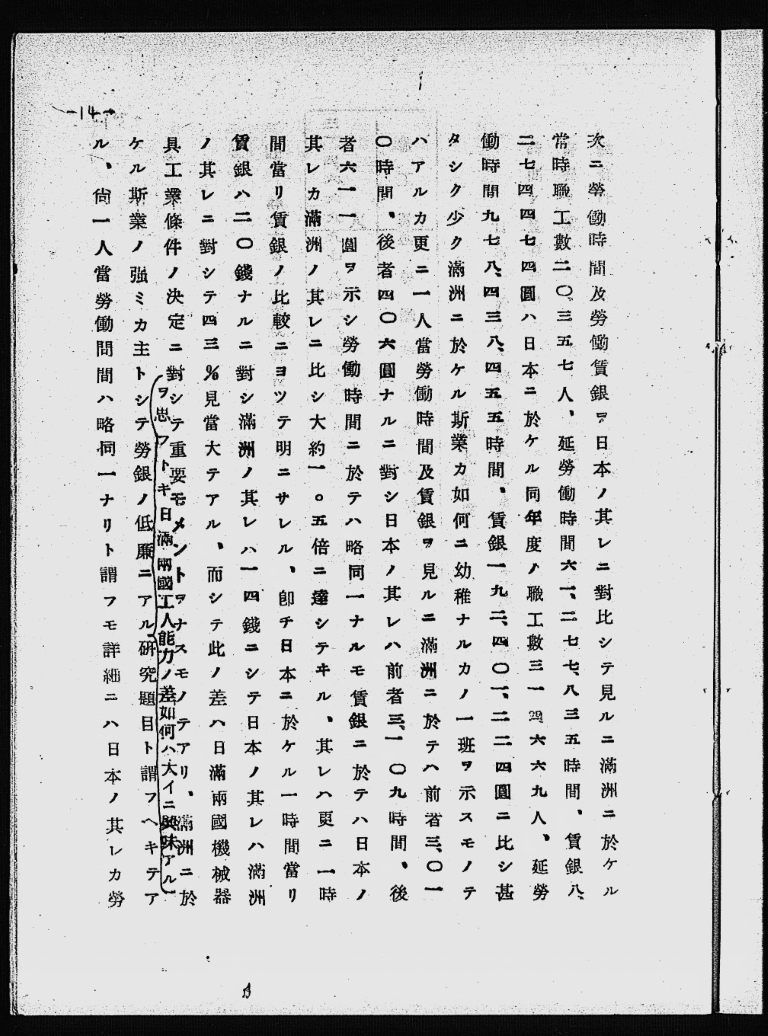 -14-
次ニ勞働時間及勞働賃銀ヲ日本ノ其レニ對比シテ見ルニ滿洲ニ於ケル
常時職工數二〇三五七人、延勞働時間六一、二七七、八三五時間、賃銀八、
二七四四七四圓ハ日本ニ於ケル同年度ノ職工數三一 六六九人、延勞
働時間九七八、四三八、四五五時間、賃銀一九二、四〇一、二二四圓ニ比シ甚
タシク少ク滿洲ニ於ケル斯業カ如何ニ幼稚ナルカノ一班ヲ示スモノテ
ハアルカ更ニ一人當勞働時間及賃銀ヲ見ルニ滿洲ニ於テハ前者三、〇一
〇時間、後者四〇六圓ナルニ對シ日本ノ其レハ前者三、一〇九時間、後
者六一一圓ヲ示シ勞働時間ニ於テハ略同一ナルモ賃銀ニ於テハ日本ノ
其レカ滿洲ノ其レニ比シ大約一。五倍ニ達シテキル、其レハ更ニ一時
間當リ賃銀ノ比較ニヨツテ明ニサレル、卽チ日本ニ於ケル一時間當リ
賃銀ハ二〇錢ナルニ對シ滿洲ノ其レハ一四錢ニシテ日本ノ其レハ滿洲
ノ其レニ對シテ四三%見當大テアル、而シテ此ノ差ハ日滿兩國機械器
具工業條件ノ決定ニ對シテ重要モメントヲナスモノテアリ、滿洲ニ於
ヲ思フトキ日滿兩國工人能力ノ差如何ハ大イニ興味アル
ケル斯業ノ强ミカ主トシテ勞銀ノ低廉ニアル研究題目ト謂フヘキテア
ル、尙一人當勞働問間ハ略同一ナリト謂フモ詳細ニハ日本ノ其レカ勞